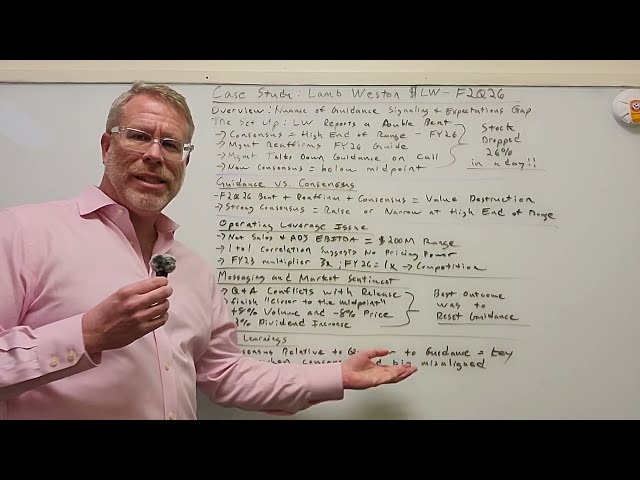 Case Study: Lamb Weston $LW - F2Q26
Overview: Nuance of Guidance Signaling & Expectations Gap
The Set Up: LW Reports a Double Beat
→ Consensus = High End of Range - FY26
→ Mgmt Reaffirms FY26 Guide
→ Mgmt Talks Down Guidance on Call
→ New Consensus = below midpoint
Stock
Dropped
26%
in a day!!
Guidance vs. Consensus
- F2Q26 Beat + Reaffirm + Consensus = Value Destruction
→ Strong Consensus = Raise or Narrow at High End of Range
Operating Leverage Issue
→ Net Sales & ADJ EBITDA = $200M Range
→ 1 to 1 Correlation Suggests No Pricing Power
→ FY23 multiplier 3x; FY26 = 1x → Competition
Messaging and Market Sentiment
→ Q&A Conflicts with Release
finish "closer to the midpoint"
+8% Volume and -8% Price
3% Dividend Increase
Best outcome
was to
Reset Guidance
Learnings
Relative to to Guidance = key
misaligned